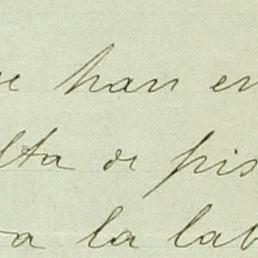 ue han en
lta de pis
va la lab